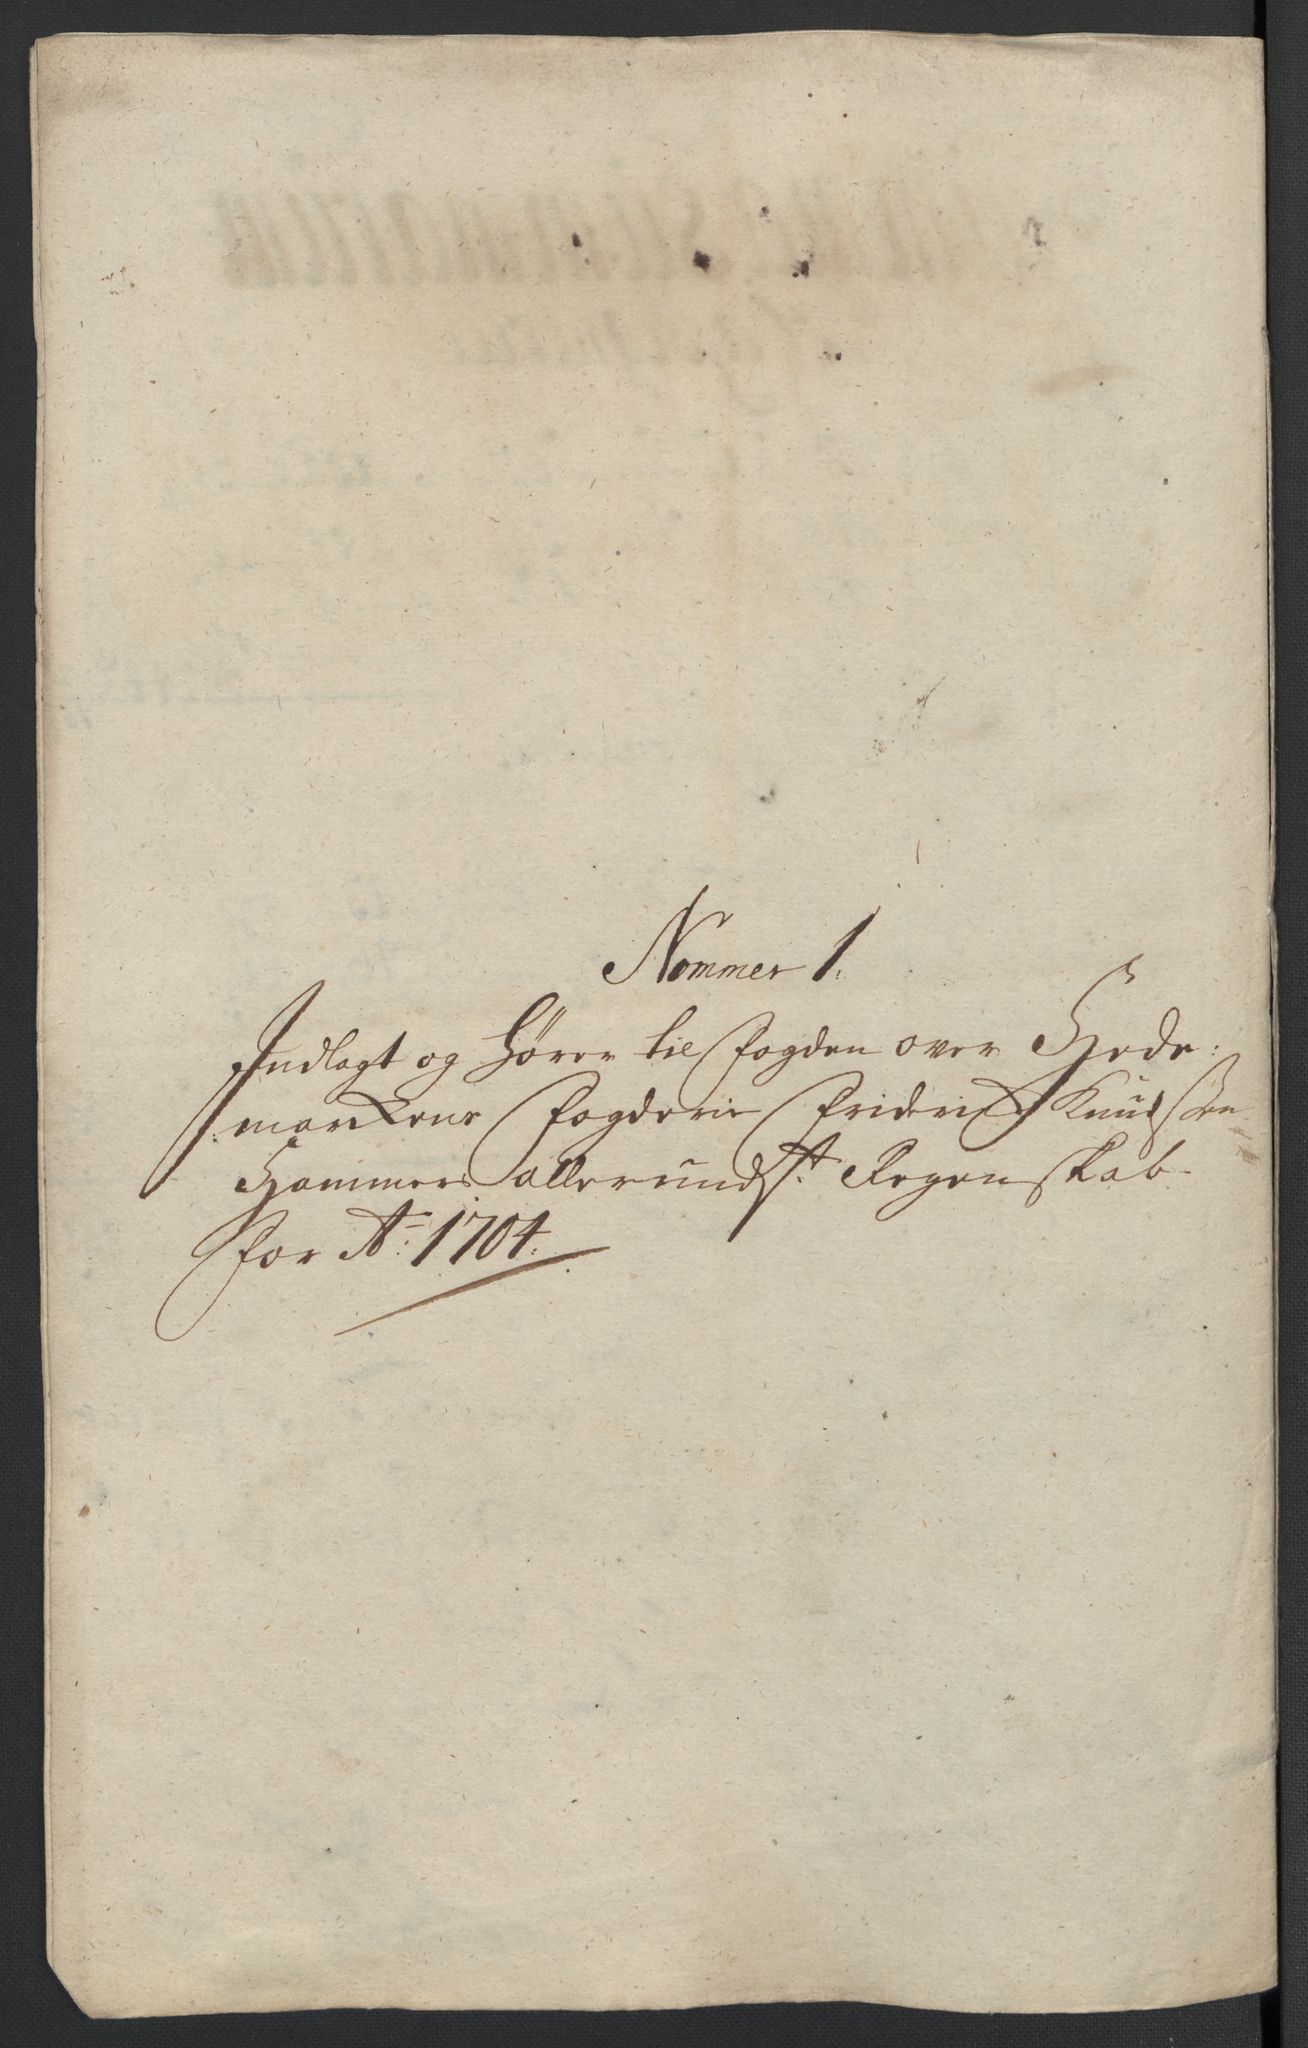 Nommer 1.
Indlagt og hører til fogden over Hede:
:markens fogderie friderich Knudssen
Hammers allerundst: Regenskab
for Ao: 1704.